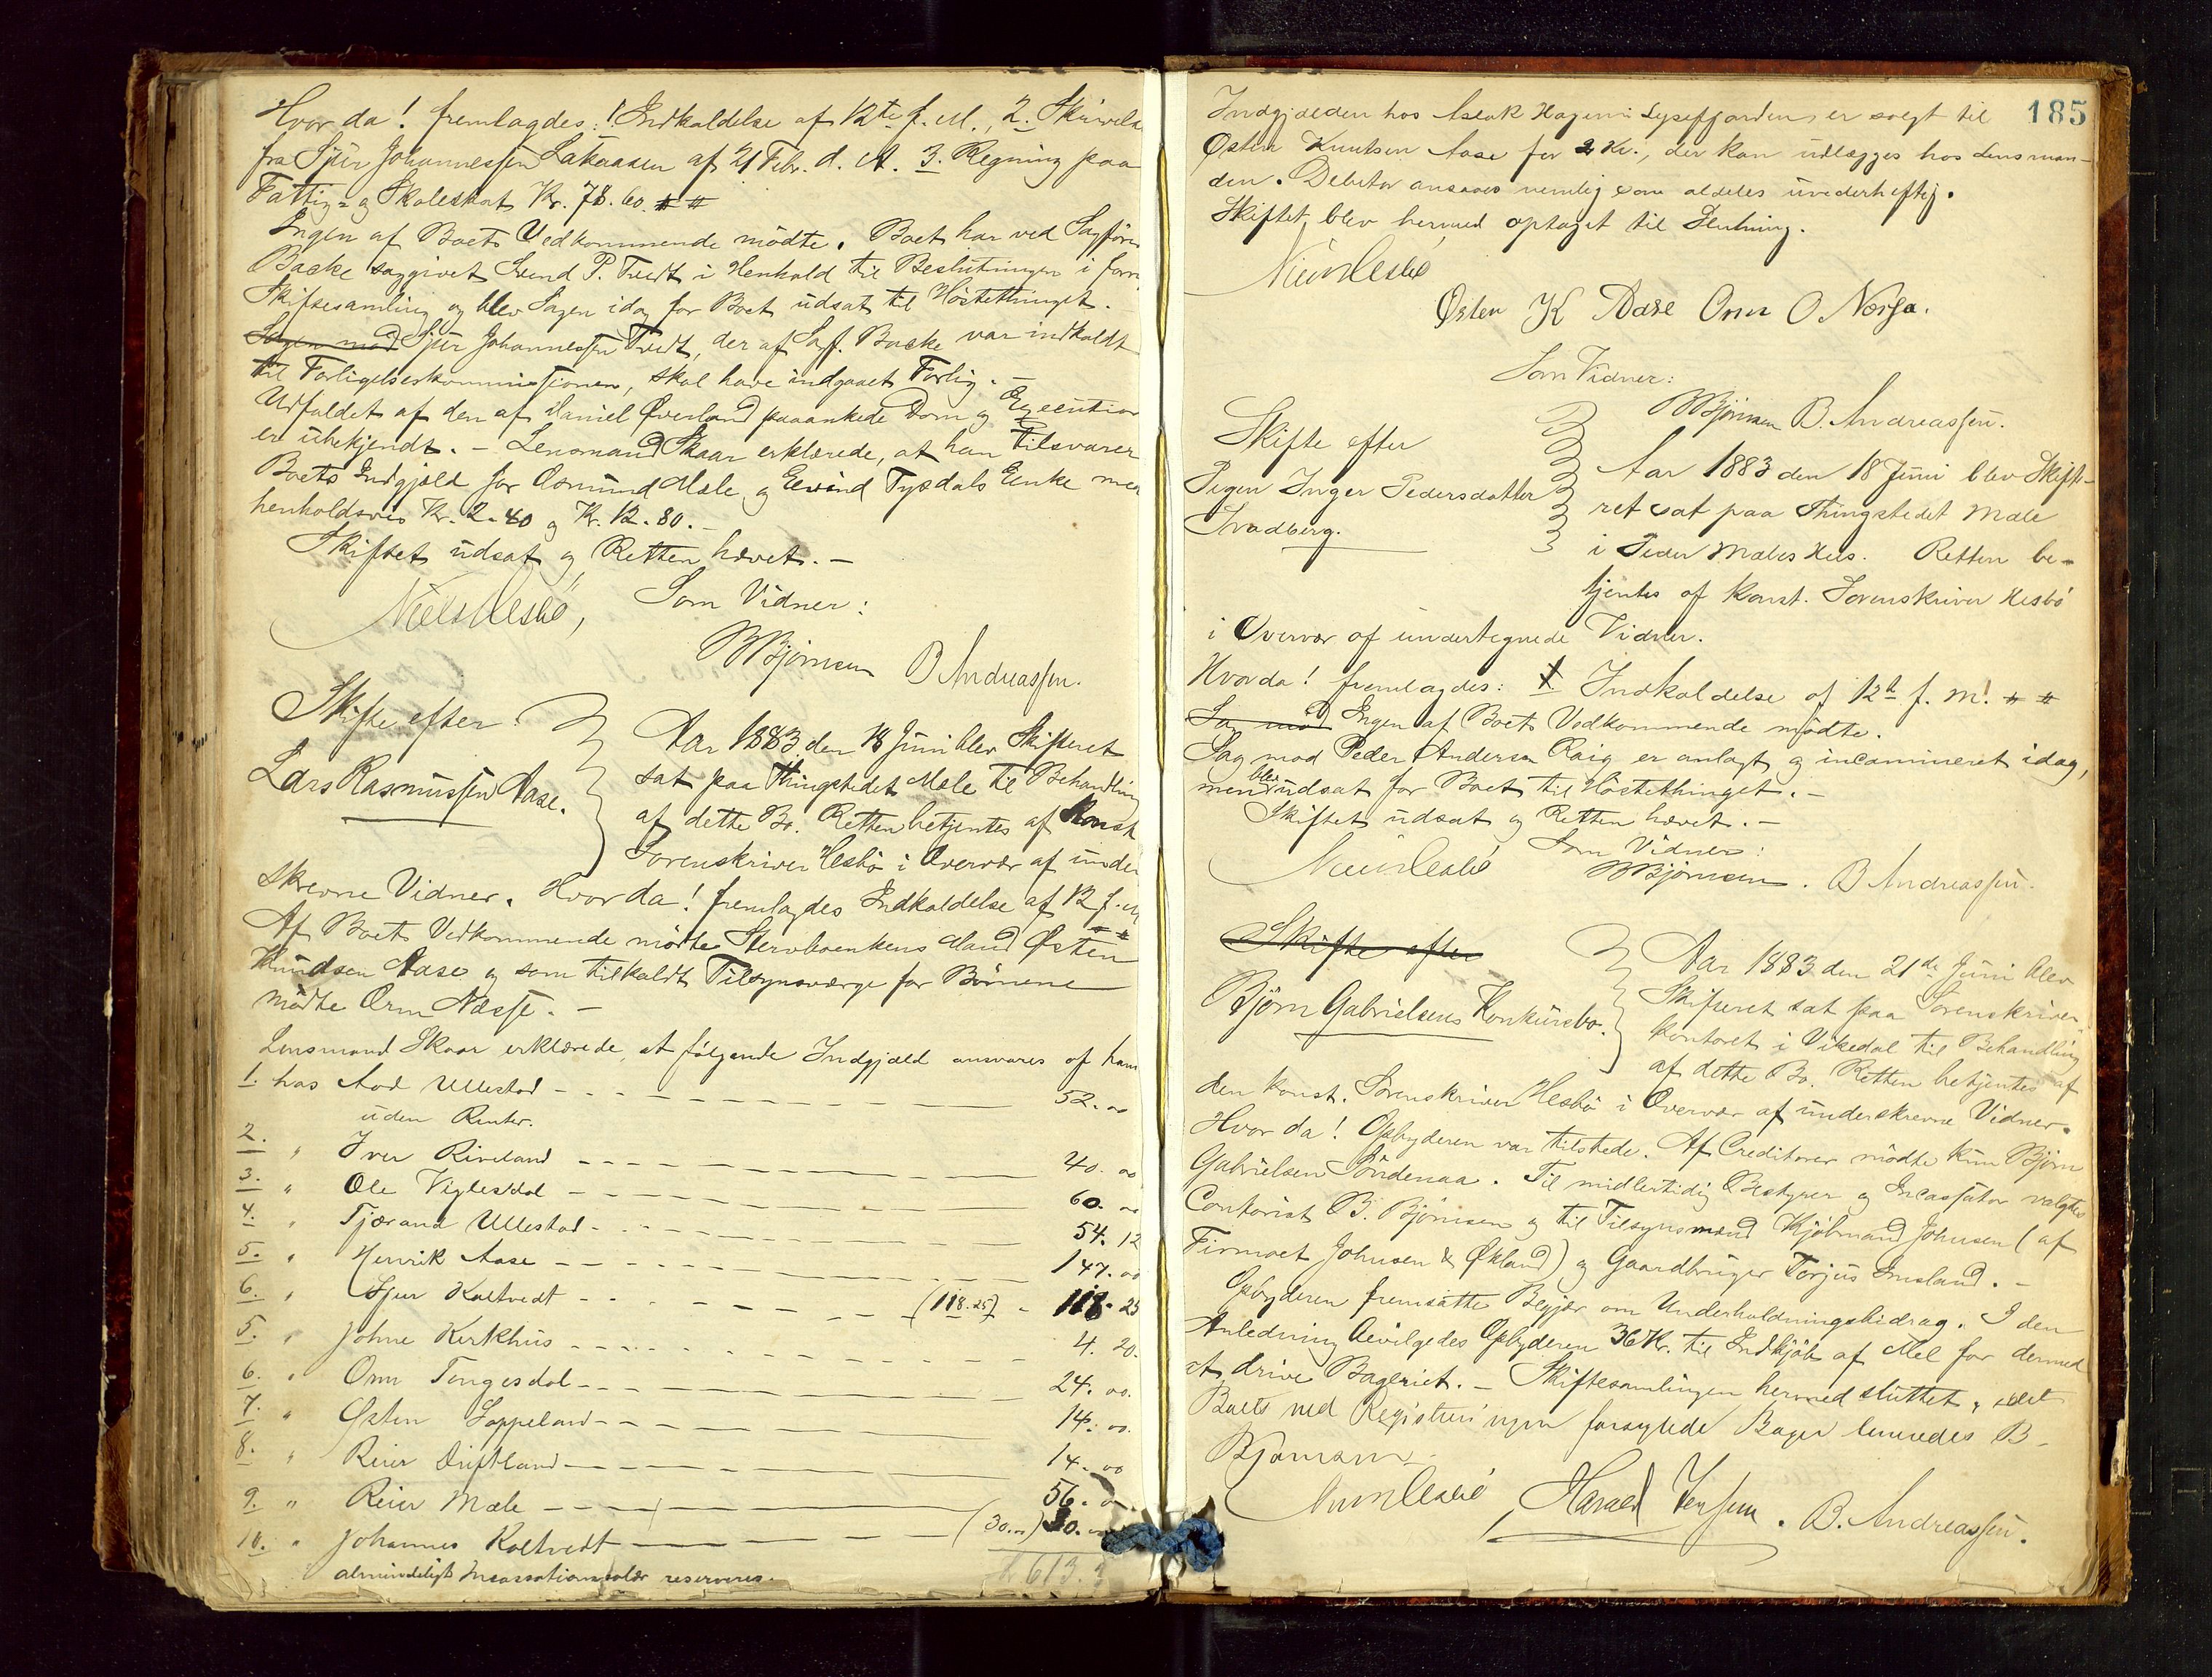 Hvor da! fremlagdes: 1. Indkaldelse af 12te f. M., 2. Skrivelse
fra Sjur Johannessen Lakaasen af 21 Febr. d. A. 3. Regning paa
Fattig- og Skoleskat Kr. 78.60. # #
Ingen af Boets Vedkommende mödte. Boet har ved Sagförer
Backe saggivet Svend P. Tvedt i Henhold til Beslutningen i forr.
Skiftesamling og blev Sagen idag for Boet udsat til Höstethinget.
Sagen mod Sjur Johannessen Tvedt, der af Sagf. Backe var indkaldt
til Forligelseskommissionen, skal have indgaaet Forlig. —
Udfaldet af den af Daniel Øverland paaankede Dom og Execution
er ubekjendt. — Lensmand Skaar erklærede, at han tilsvarer
Boets Indgjæld for Asmund Mæle og Eivind Tysdals Enke med
henholdsvis Kr. 2.40 og Kr. 12.80. —
Skiftet udsat og Retten hævet. —
Niels Hesbö, Som Vidner:
BBjörnsen B Andreassen.
Skifte efter
Lars Rasmussen Aase.
Aar 1883 den 18 Juni blev Skifteret
sat paa Thingstedet Mæle til Behandling
af dette Bo. Retten betjentes af Konst
Sorenskriver Hesbö i Overvær af under
skrevne Vidner. Hvor da! fremlagdes Indkaldelse af 12 f. M
# #
Af Boets Vedkommende mödte Stervboenkens Mand Østen
Knudsen Aase og som tilkaldt Tilsynsværge for Börnene
mödte Orm Næsse. —
Lensmand Skaar erklærede, at fölgende Indgjæld ansvares af ham
1. hos Aad Ullestad — 52.00
uden Renter.
2. " Iver Riveland — 40.00
3. " Ole Viglesdal — 60.00
4. " Tjærand Ullestad — 54.12
5. " Henrik Aase — 147.00
6. " Sjur Kaltvedt — (118.25) - 118.25
5. " Johne Kirkhus — 4.20.
6. " Orm Tengesdal — 24.00.
7. " Østen Loppeland — 14.00.
8. " Reier Driftland — 14.00
9. " Reier Mæle — 56.00
10. " Johannes Kaltvedt — (30.00) 30.00
almindeligt Incassationssalær reserveres.
613.
185
Indgjælden hos Aslak Hagen i Lysefjorden er solgt til
Østen Knutsen Aase for 2 Kr., der kan udlægges hos Lensman-
den. Debitor ansaaes nemlig som aldeles uvederheftig.
Skiftet blev hermed optaget til Slutning.
Niels Hesbö
Østen K Aase Orm O Næssa.
Som Vidner:
BBjörnsen B. Andreassen.
Skifte efter
Pigen Inger Pedersdatter
Svadberg.
Aar 1883 den 18 Juni blev Skifte-
ret sat paa Thingstedet Mæle
i Peder Mæles Hus. Retten be-
tjentes af konst. Sorenskriver Hesbö
i Overvær af undertegnede Vidner.
Hvor da! fremlagdes: 1 Indkaldelse af 12te f. M. # #
Sa mo Ingen af Boets Vedkommende mödte.
Sag mod Peder Andersen Roig er anlagt og incamineret idag,
men blev udsat for Boet til Höstethinget. —
Skiftet udsat og Retten hævet. —
Som Vidner:
Niels Hesbö BBjörnsen. B Andreassen.
Skifte efter
Björn Gabrielsens Konkursbo.
Aar 1883 den 21de Juni blev
Skifteret sat paa Sorenskriver
kontoret i Vikedal til Behandling
af dette Bo. Retten betjentes af
den konst. Sorenskriver Hesbö i Overvær af underskrevne Vidner.
Hvor da! Opbyderen var tilstede. Af Creditorer mödte kun Björn
Gabrielsen Söndenaa. Til midlertidig Bestyrer og Incassator valgtes
Contorist B. Björnsen og til Tilsynsmænd Kjöbmand Johnsen (af
Firmaet Johnsen & Økland) og Gaardbruger Torjus Imsland. —
Opbyderen fremsatte Begjær om Underholdningsbidrag. I den
Anledning bevilgedes Opbyderen 36 Kr. til Indkjöb af Mel for dermed
at drive Bageriet. — Skiftesamlingen hermed sluttet, idet
Boets ved Registreringen forseglede Bager leveredes B.
Björnsen.
Niels Hesbö, Harald Jensen. B. Andreassen.